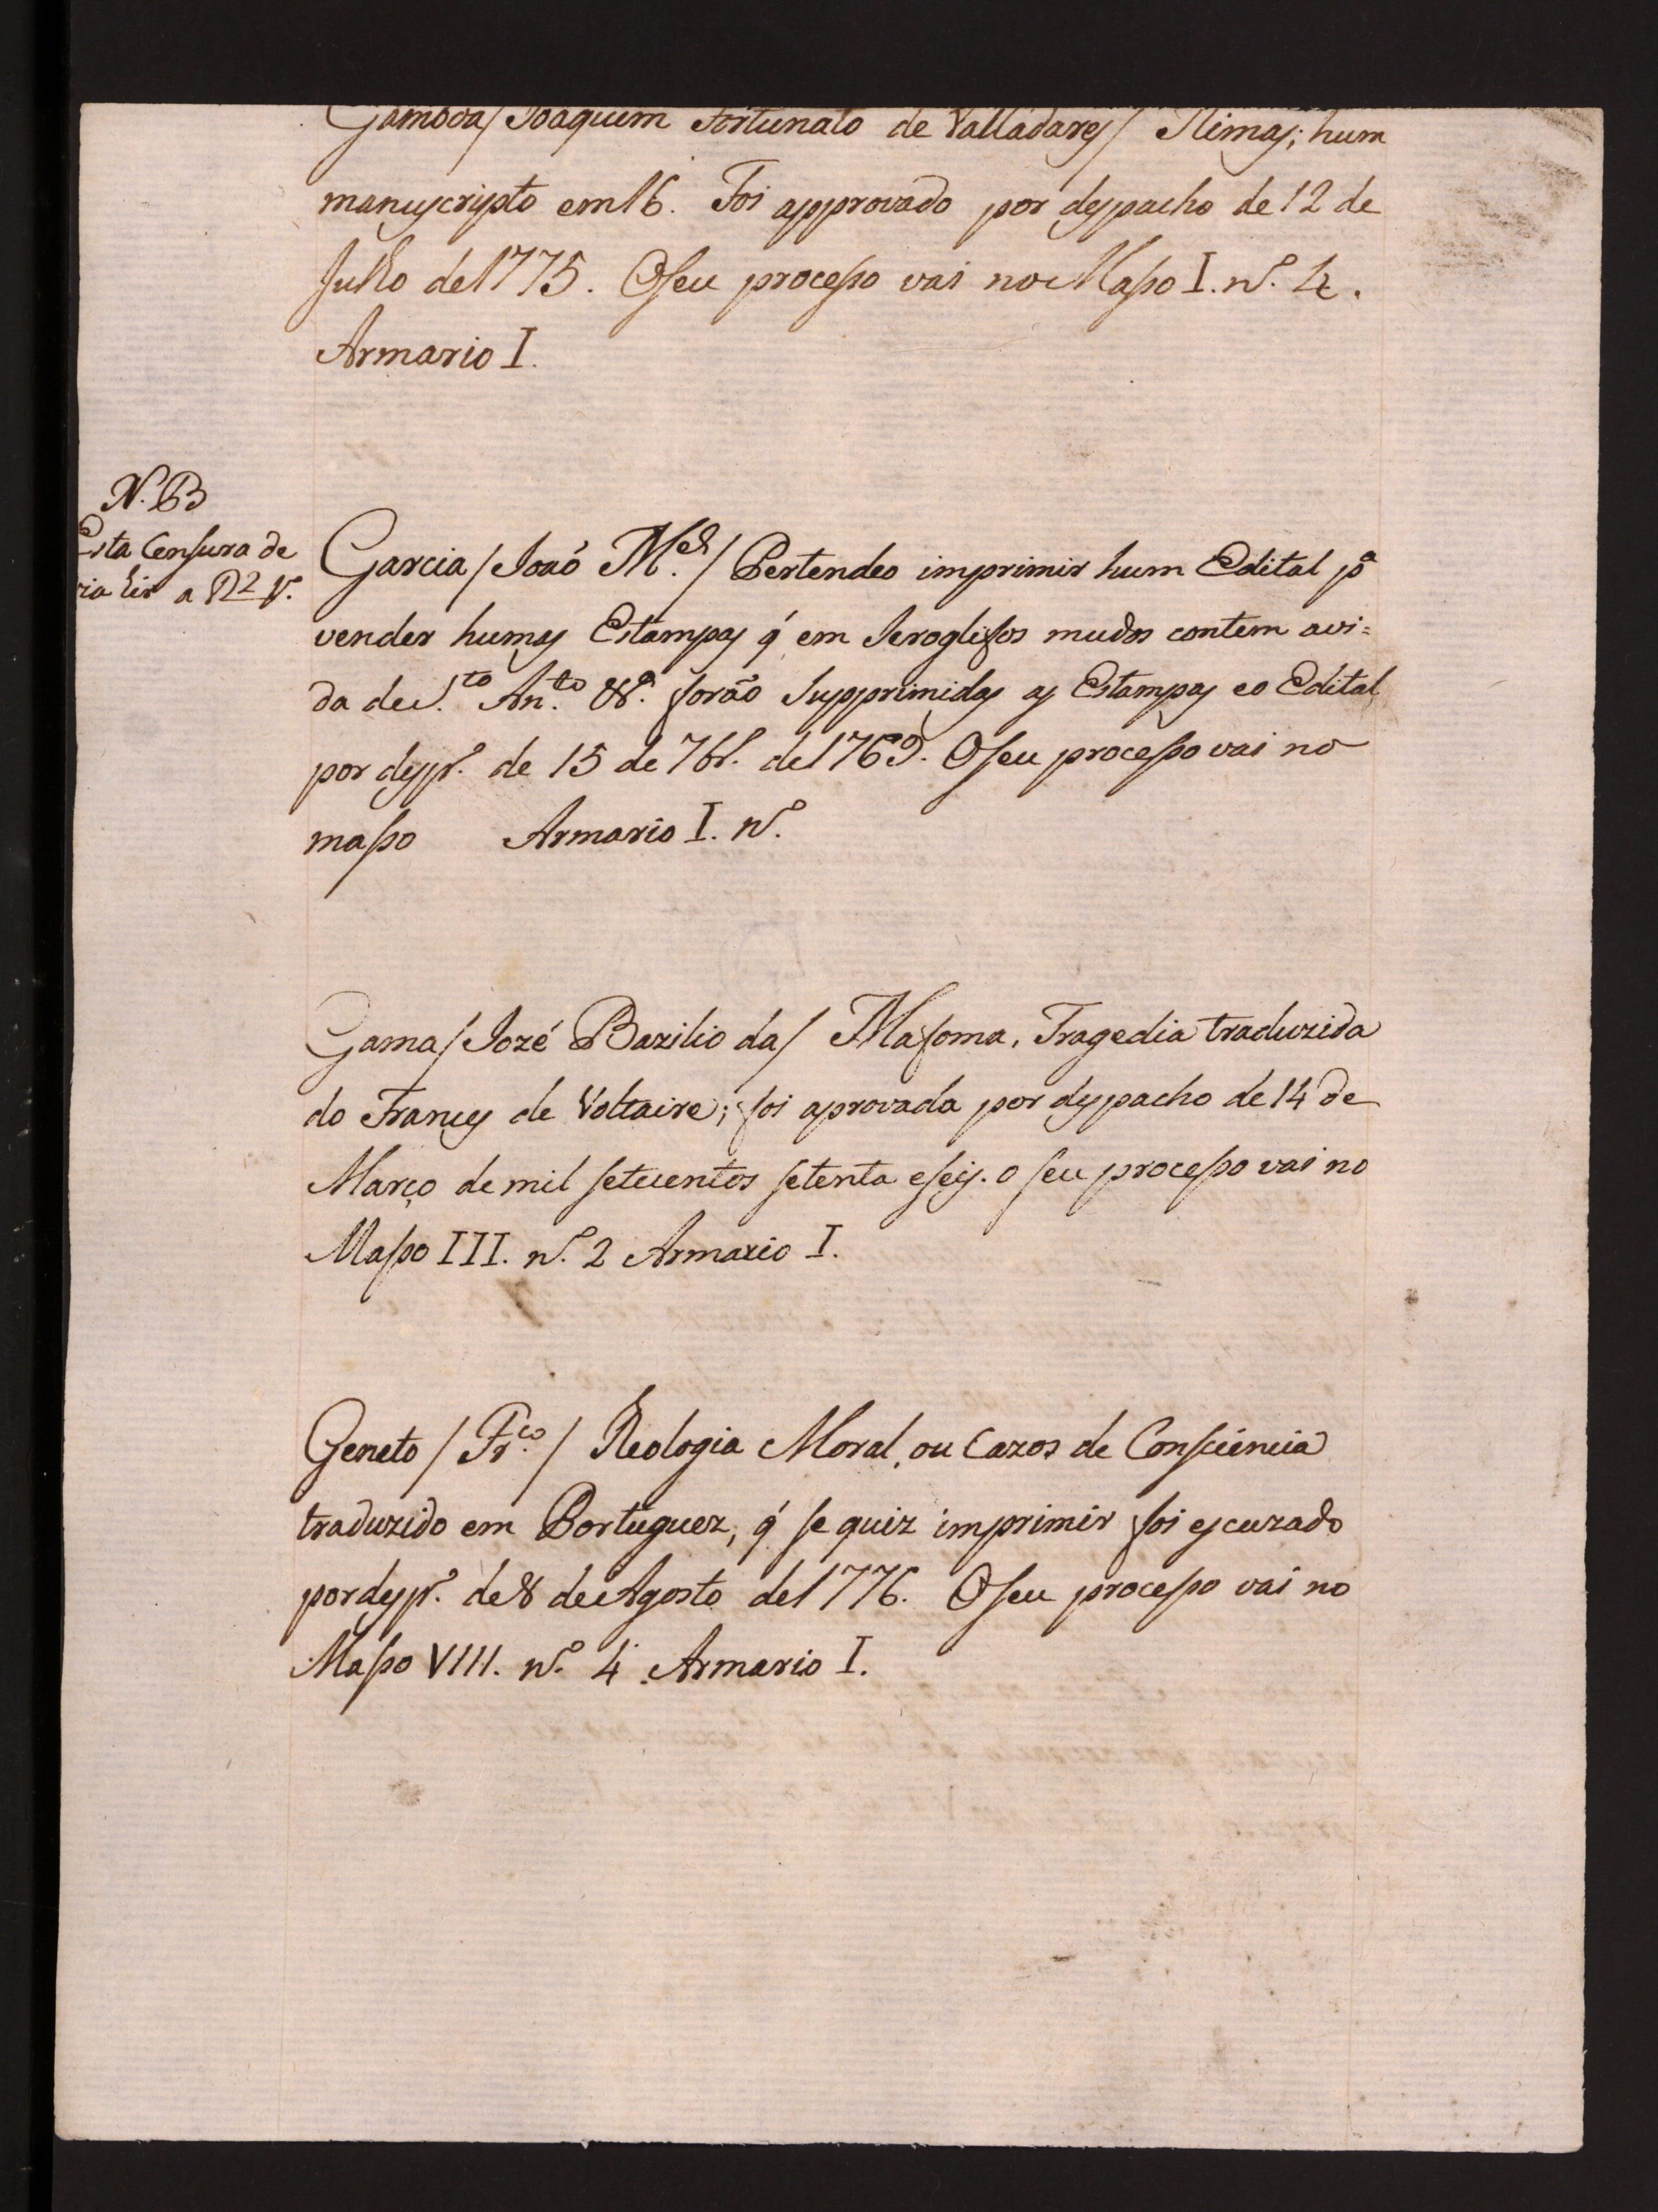 Gamboa/Joaquim Fortunato de Valladares/ Rimas; hum
manuscripto em 16. Foi approvado por despacho de 12 de
Julho de 1775. O seu processo vai no Masso I. nº. 4.
Armario I.
N.B
Esta Censura de
ria hir a
Garcia/João Mel./Pertendeo imprimir hum Edital pª
vender humas Estampas q́ em Jeroglifos mudos contem avi=
da de S.to An.to &ª. forão Supprimidas as Estampas eo Edital
por desp.º de 15 de 7br.º de 1769. O seu processo vai no
masso Armario I. nº
Gama/Jozé Bazilio da/ Mafoma, Tragedia traduzida
do Frances de Voltaire; foi aprovada por despacho de 14 de
Março de mil setecentos setenta eseis. o seu processo vai no
Masso III. nº. 2 Armario I.
Geneto/Fr.co/ Theologia Moral, ou Cazos de Consciencia
traduzido em Portuguez, q́ se quiz imprimir foi escuzado
por desp.º de 8 de Agosto de 1776. O seu processo vai no
Masso VIII. nº. 4 Armario I.